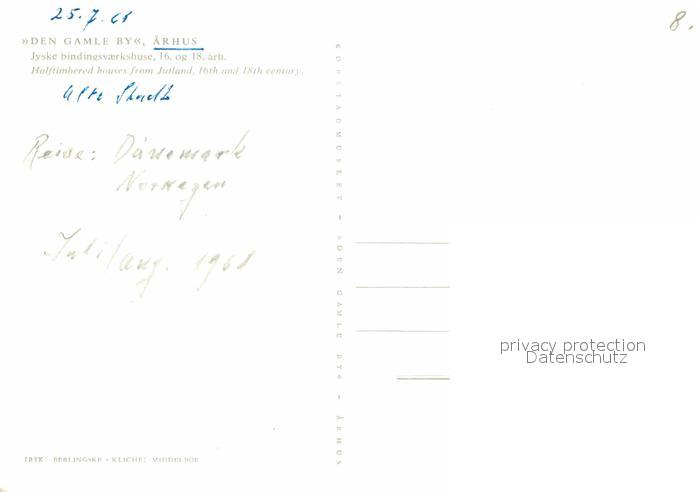 25.7.68
»DEN GAMLE BY«, ÅRHUS
Jyske bindingsværkshuse, 16. og 18. årh.
Halftimbered houses from Jutland, 16th and 18th century.
Alte Stadt
Reise: Dänemark
Norwegen
Juli/Aug. 1968
TRYK: BERLINGSKE • KLICHE: MIDDELBOE
KØBSTADMUSEET – »DEN GAMLE BY« – ÅRHUS
8.
privacy protection
Datenschutz